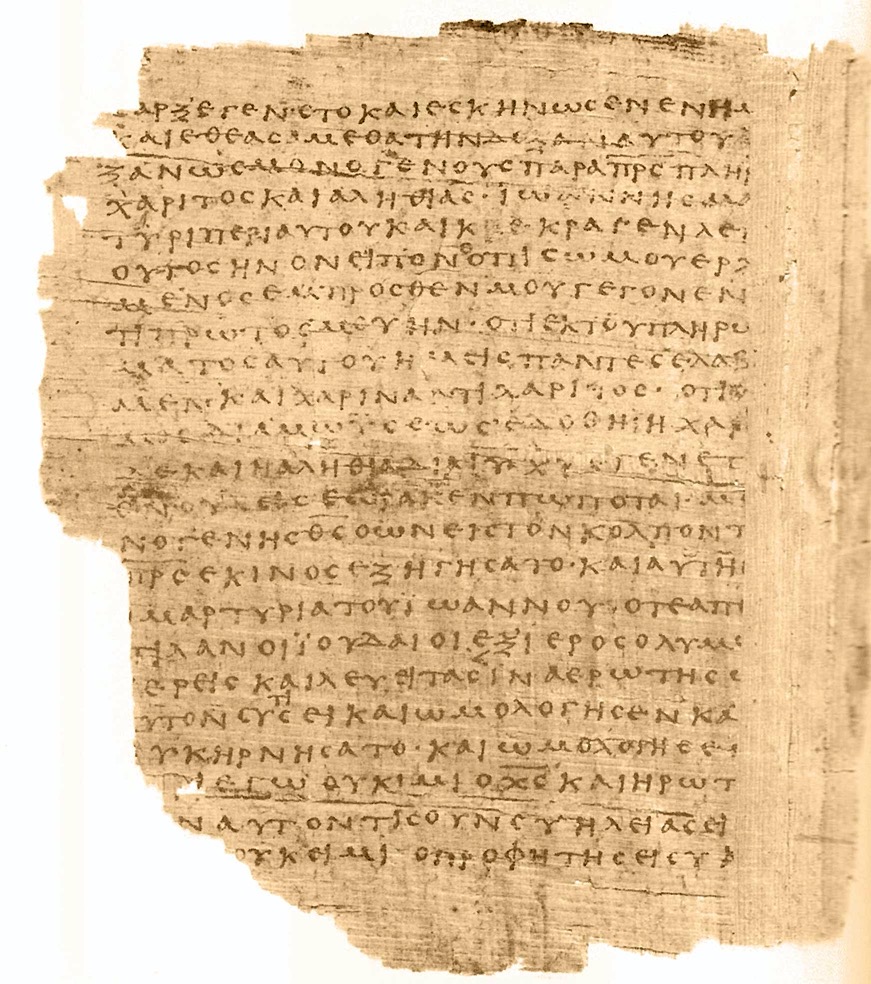 σαρξ εγενετο και εσκηνωσεν εν ημ
και εθεασαμεθα την δοξαν αυτου
ξαν ως μονογενους παρα πρς πλη
χαριτος και αληθιας · ϊωαννης μα
τυρι περι αυτου και κ ε κραγεν λε
ουτος ην ον ειπον ο οπισω μου ερχ
μενος εμπροσθεν μου γεγονεν
τι πρωτος μου ην · οτι εκ του πληρω
ματος αυτου ημεις παντες ελαβ
μεν · και χαριν αντι χαριτος · οτι
μος δια μωϋσεως εδοθη η χαρ
δε και η αληθια δια ιυ χυ εγενετ
θν ουδεις εωρακεν πωποτε · μ
νογενης θς ο ων εις τον κολπον τ
πρς εκινος εξηγησατο · και αυτη
μαρτυρια του ϊωαννου · οτε απ
τιλαν οι ϊουδαιοι εξ ιεροσολυμ
ερεις και λευειτας ινα ερωτησ
υτον συ τις ει και ωμολογησεν κα
υκ ηρνησατο · και ωμολογησε
τι εγω ουκ ιμι ο χς και ηρωτ
ν αυτον τις ουν συ ηλειας ει
ουκ ειμι ο προφητης ει συ